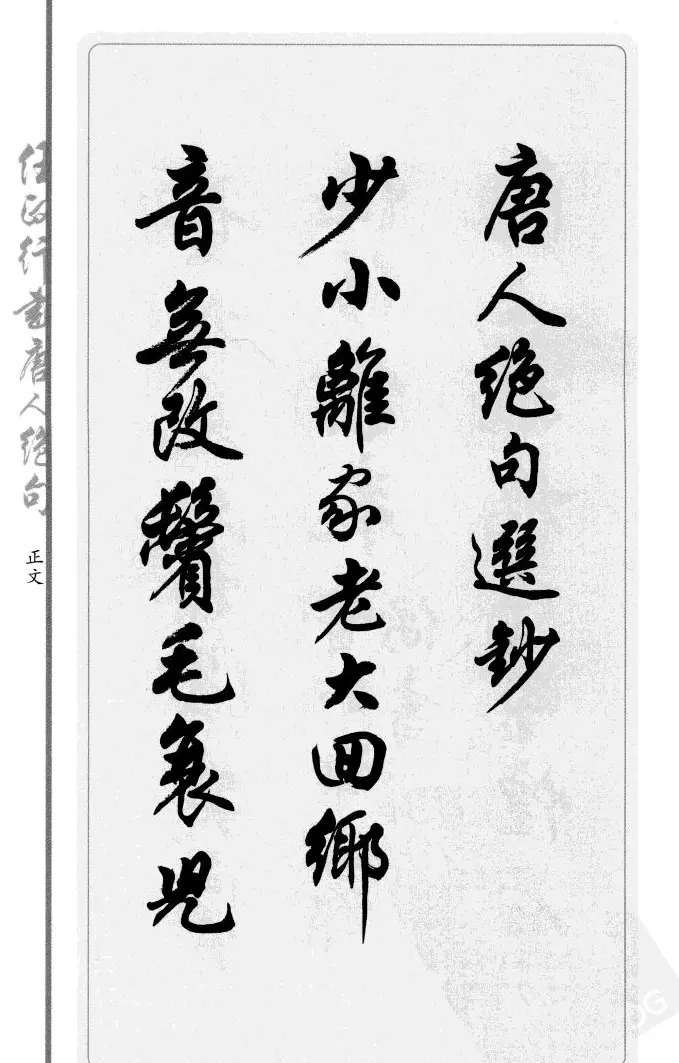 唐人绝句選鈔
少小離家老大回鄉
音無改鬢毛衰兒
任政行書唐人絕句
正文